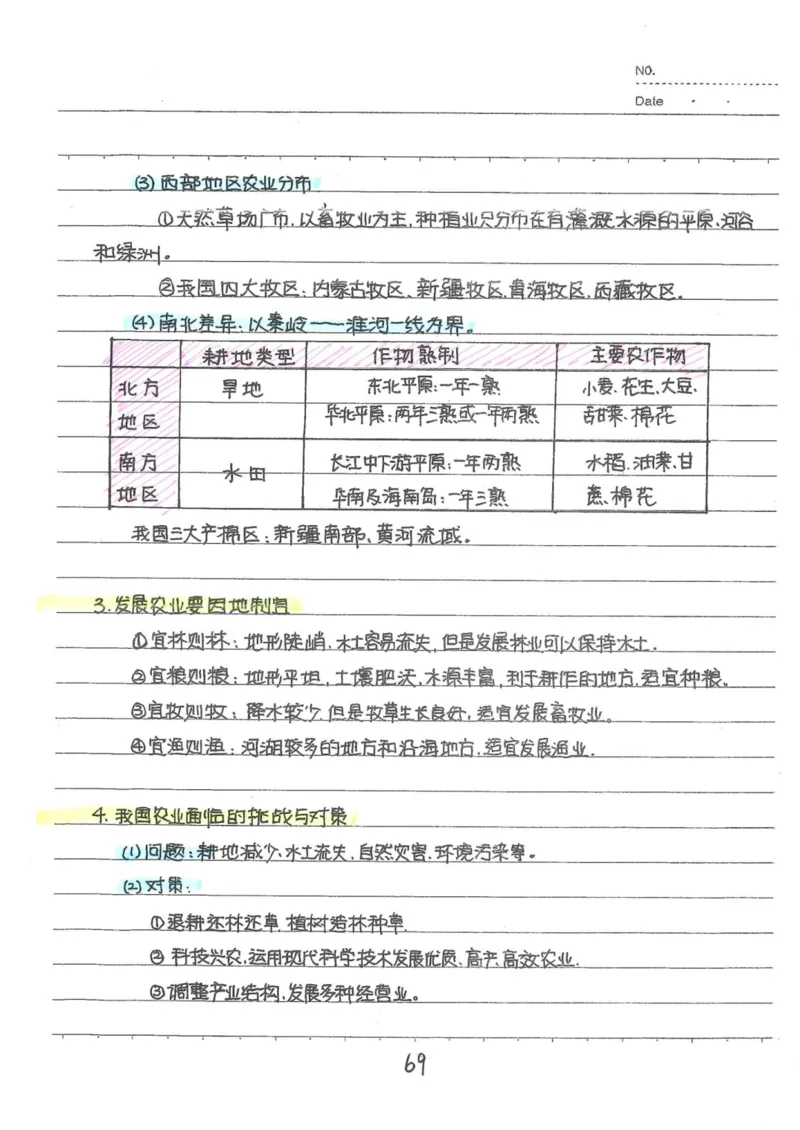 NO.
Date
(3) 西部地区农业分布
①天然草场广布,以畜牧业为主,种植业只分布在有灌溉水源的平原、河谷
和绿洲。
②我国四大牧区:内蒙古牧区、新疆牧区,青海牧区,西藏牧区。
(4)南北差异:以秦岭——淮河一线为界。
耕地类型 作物熟制 主要农作物
北方 旱地 东北平原:一年一熟 小麦、花生、大豆、
地区 华北平原:两年三熟或一年两熟 甜菜、棉花
南方 水田 长江中下游平原:一年两熟 水稻、油菜、甘
地区 华南及海南岛:一年三熟 蔗、棉花
我国三大产棉区:新疆南部、黄河流域。
3.发展农业要因地制宜
①宜林则林:地形陡峭,水土容易流失,但是发展林业可以保持水土.
②宜粮则粮:地形平坦,土壤肥沃,水源丰富,利于耕作的地方,适宜种粮。
③宜牧则牧:降水较少,但是牧草生长良好,适宜发展畜牧业。
④宜渔则渔:河湖较多的地方和沿海地方,适宜发展渔业.
4.我国农业面临的挑战与对策
(1)问题:耕地减少、水土流失,自然灾害.环境污染等。
(2)对策:
①退耕还林还草,植树造林种草.
② 科技兴农,运用现代科学技术发展优质、高产、高效农业.
③调整产业结构,发展多种经营业。
69